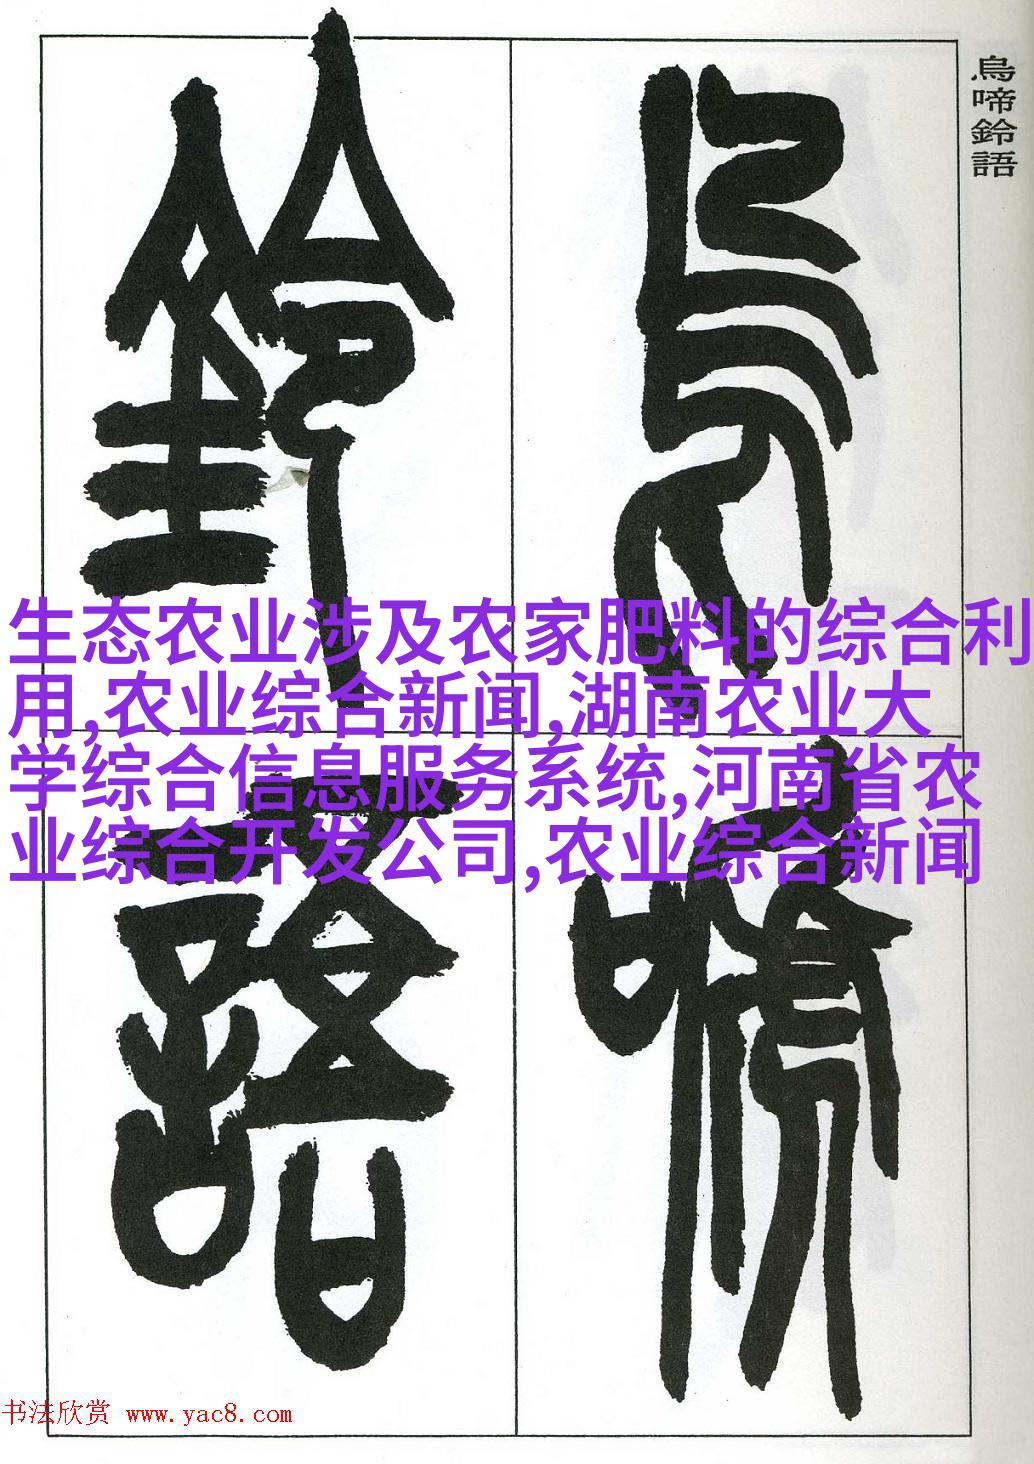 烏啼鈴語
烏啼
鈴語
生态农业涉及农家肥料的综合利
用,农业综合新闻,湖南农业大
学综合信息服务系统,河南省农
业综合开发公司,农业综合新闻
书法欣赏 www.yac8.com